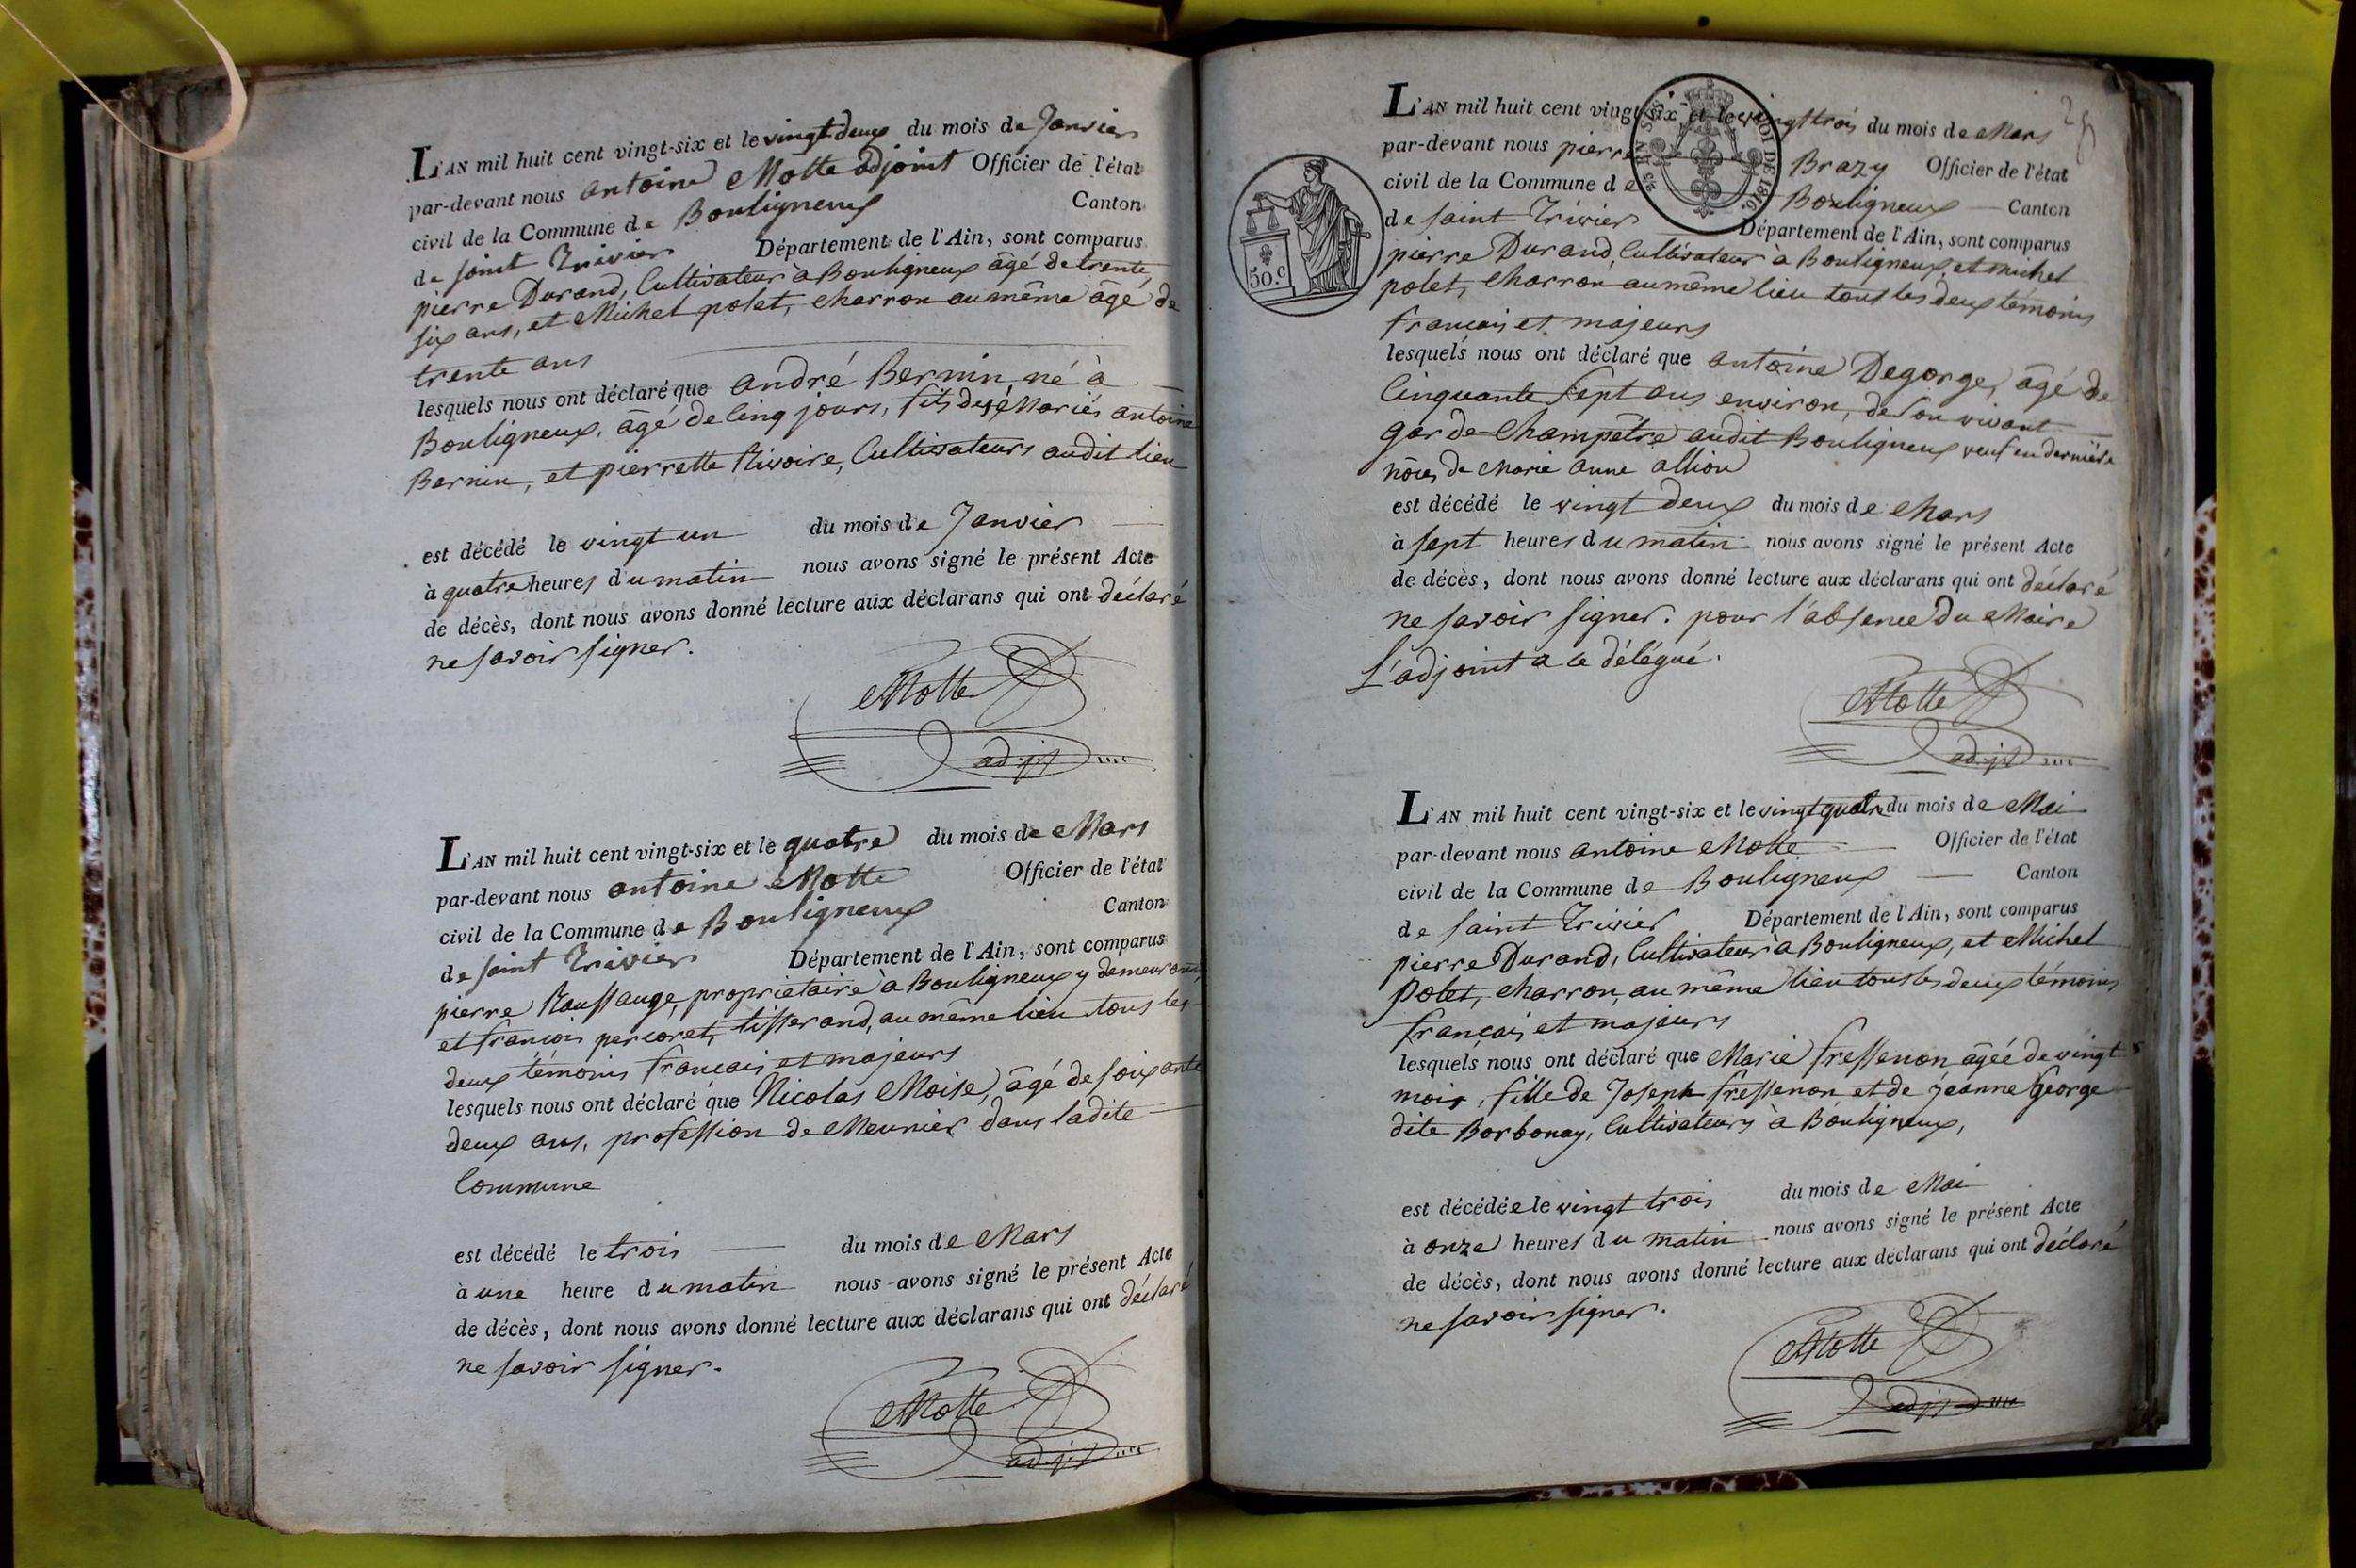 L'AN mil huit cent vingt-six et le vingt deux du mois de Janvier
par-devant nous antoine Motte adjoint Officier de l'état
civil de la Commune de Bouligneux Canton
de saint Trivier Département de l'Ain, sont comparus
pierre Durand, Cultivateur à Bouligneux âgé de trente
six ans, et Michel polet, charron au même âgé de
trente ans
lesquels nous ont déclaré que andré Bernin né à
Bouligneux, âgé de Cinq jours, fils des Mariés antoine
Bernin, et pierrette Rivoire, Cultivateurs audit lieu
est décédé le vingt un du mois de Janvier
à quatre heures du matin nous avons signé le présent Acte
de décès, dont nous avons donné lecture aux déclarans qui ont déclaré
ne savoir signer.
Motte
adjt
L'AN mil huit cent vingt-six et le quatre du mois de Mars
par-devant nous antoine Motte Officier de l'état
civil de la Commune de Bouligneux Canton
de saint Trivier Département de l'Ain, sont comparus
pierre Roussange, propriétaire à Bouligneux y demeurant,
et françois percoret, tisserand, au même lieu tous les
deux témoins français et majeurs
lesquels nous ont déclaré que Nicolas Moise, âgé de soixante
deux ans, profession de Meunier dans ladite
Commune
est décédé le trois du mois de Mars
à une heure du matin nous avons signé le présent Acte
de décès, dont nous avons donné lecture aux déclarans qui ont déclaré
ne savoir signer.
Motte
adjt
L'AN mil huit cent vingt-six et le vingt trois du mois de Mars
par-devant nous pierre Brazy Officier de l'état
civil de la Commune de Bouligneux Canton
de saint Trivier Département de l'Ain, sont comparus
pierre Durand, Cultivateur à Bouligneux, et michel
polet, charron au même lieu tous les deux témoins
français et majeurs
lesquels nous ont déclaré que antoine Degorge, âgé de
Cinquante sept ans environ, de son vivant
garde-Champêtre audit Bouligneux veuf en dernière
nôces de Marie anne allion
est décédé le vingt deux du mois de Mars
à sept heures du matin nous avons signé le présent Acte
de décès, dont nous avons donné lecture aux déclarans qui ont déclaré
ne savoir signer. pour l'absence du Maire
L'adjoint a ce délégué.
Motte
adjt
50.c
LOI DE 1816.
L'AN mil huit cent vingt-six et le vingt quatre du mois de Mai
par-devant nous antoine Motte Officier de l'état
civil de la Commune de Bouligneux Canton
de saint Trivier Département de l'Ain, sont comparus
pierre Durand, Cultivateur à Bouligneux, et Michel
Polet, charron, au même lieu tous les deux témoins
français et majeurs
lesquels nous ont déclaré que Marie fressenon âgée de vingt
mois, fille de Joseph fressenon et de jeanne George
dite Borbonay, Cultivateurs à Bouligneux,
est décédée le vingt trois du mois de Mai
à onze heures du matin nous avons signé le présent Acte
de décès, dont nous avons donné lecture aux déclarans qui ont déclaré
ne savoir signer.
Motte
adjt